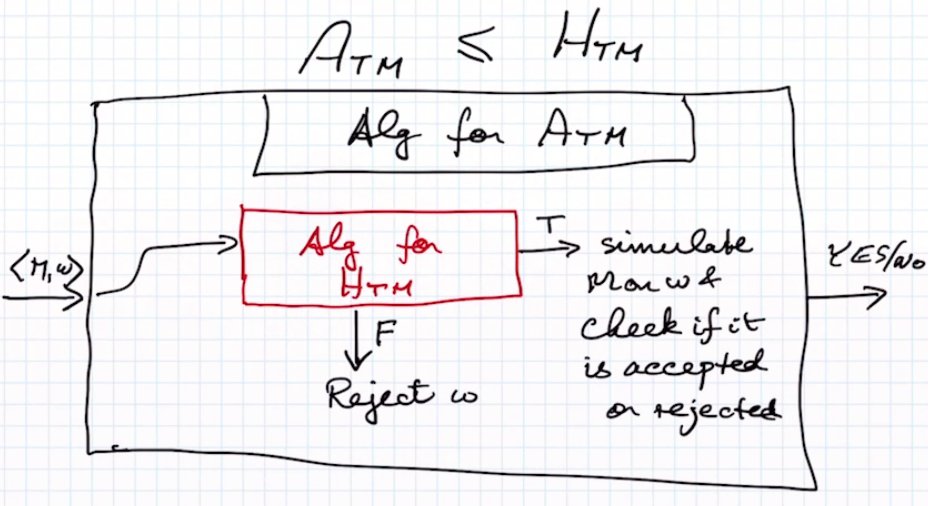 ATM ≤ HTM
Alg for ATM
<M,w>
Alg for
HTM
T
simulate
M on w &
check if it
is accepted
or rejected
YES/No
F
Reject w